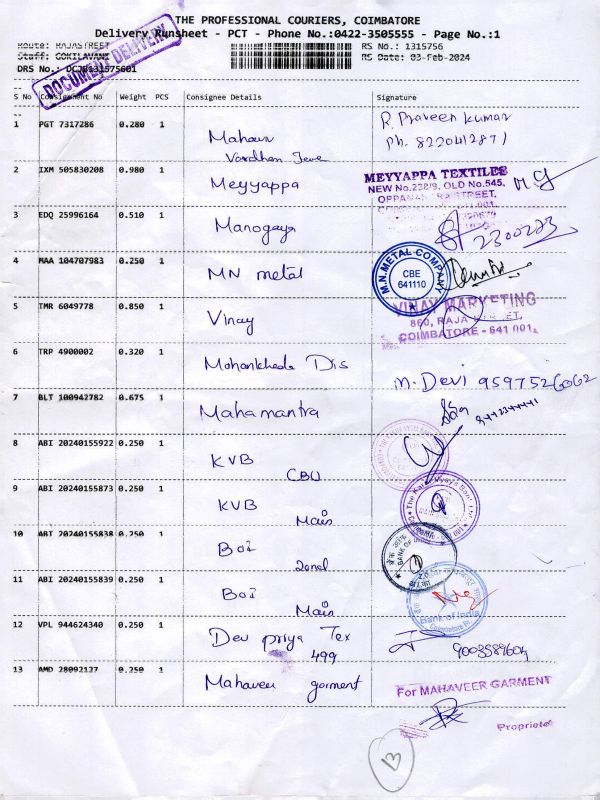 THE PROFESSIONAL COURIERS, COIMBATORE
Delivery Runsheet - PCT - Phone No.:0422-3505555 - Page No.:1
Route: RAJASTREET
RS No.: 1315756
Staff: GOKILAVANI
RS Date: 03-Feb-2024
DRS No.: DCJB131575601
DOCUMENT DELIVERY
S No Consignment No Weight PCS Consignee Details Signature
1 PGT 7317286 0.280 1
R. Praveen Kumar
Ph. 8220412871
Vardhan
2 IXM 505830208 0.980 1 Meyyappa
MEYYAPPA TEXTILES
NEW No.228/9, OLD No.545,
3 EDQ 25996164 0.510 1 Manogaya
2300283
4 MAA 104707983 0.250 1 MN metal
M.N.METAL COMPANY
CBE
641110
5 TMR 6049778 0.850 1 Vinay
VINAY MARKETING
860, RAJA STREET,
COIMBATORE - 641 001.
6 TRP 4900002 0.320 1 Dis
M. Devi 9597526062
7 BLT 100942782 0.675 1 Mahamantra
8 ABI 20240155922 0.250 1 KVB
CBU
9 ABI 20240155873 0.250 1 KVB
Main
10 ABI 20240155838 0.250 1 BoI
Zonal
BANK OF INDIA
11 ABI 20240155839 0.250 1 BoI
Main
Bank of India
12 VPL 944624340 0.250 1 Dev priya Tex
499
13 AMD 28092127 0.250 1 Mahaveer garment
For MAHAVEER GARMENT
Proprietor
13